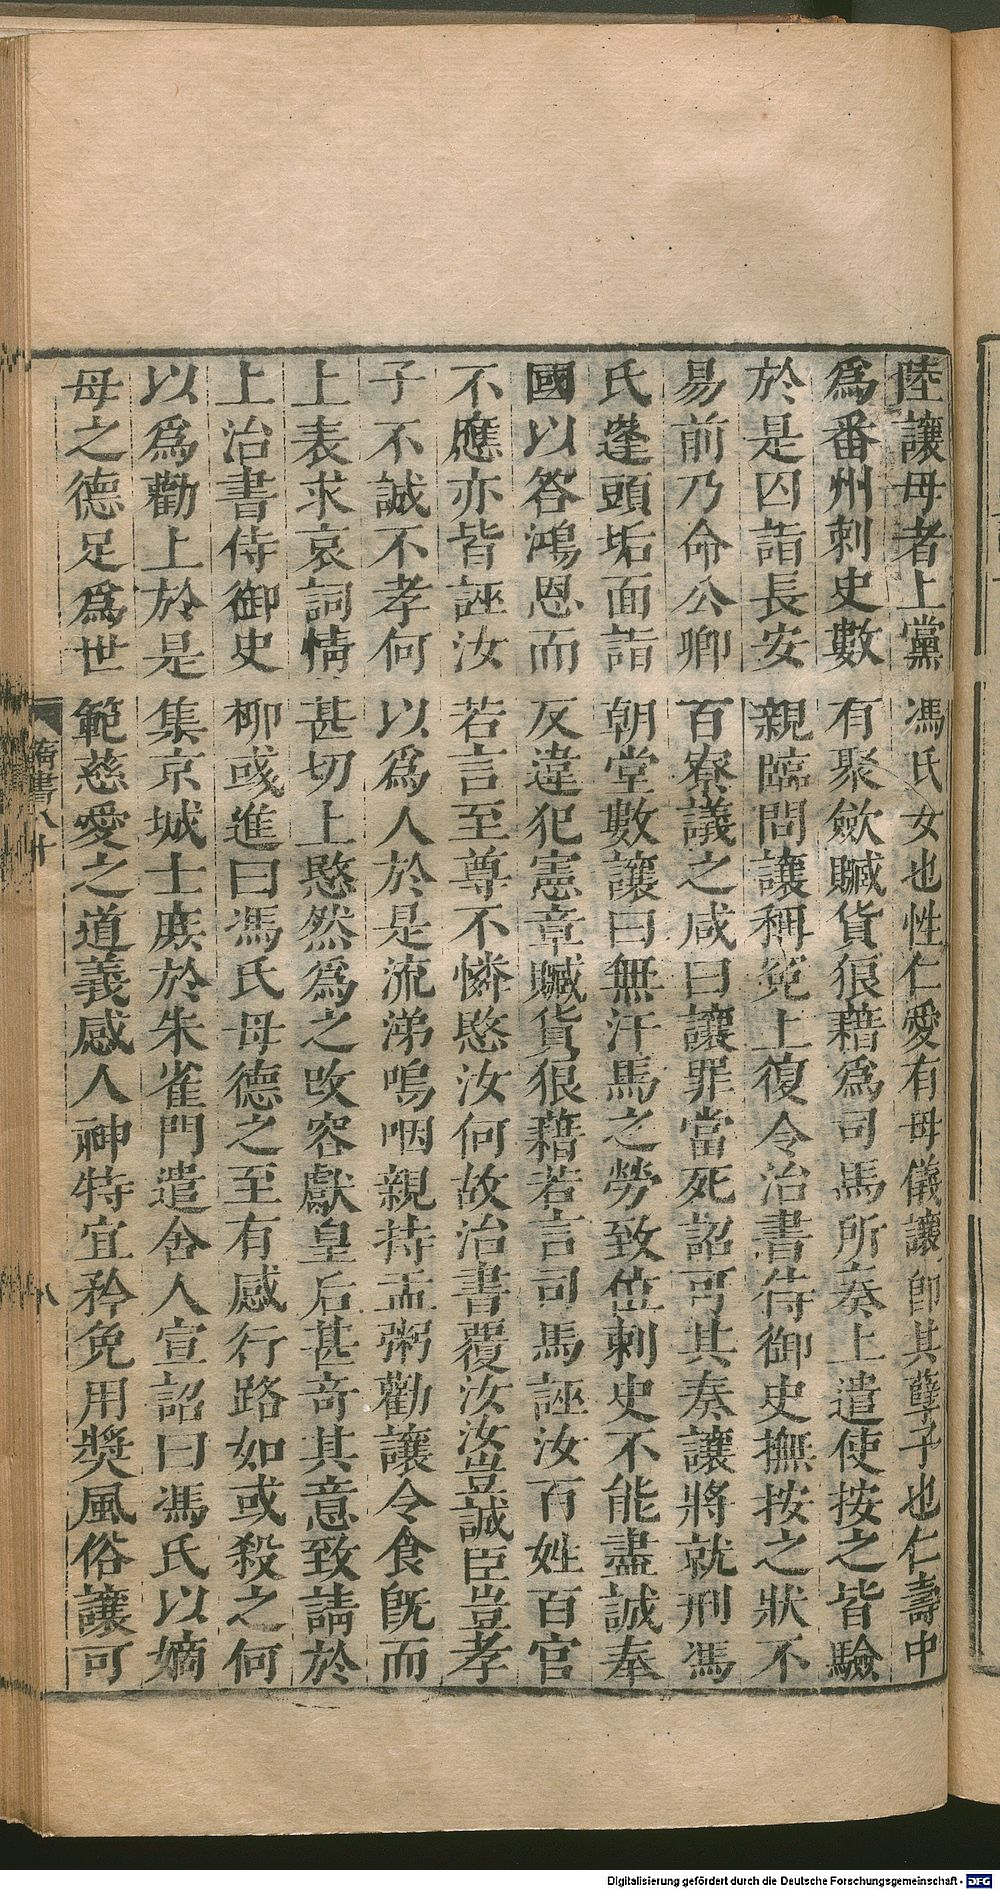 陸讓母者上黨馮氏女也性仁愛有母儀讓卽其孽子也仁壽中
爲番州刺史數有聚斂贓貨狼藉爲司馬所奏上遣使按之皆驗
於是囚詣長安親臨問讓稱冤上復令治書侍御史撫按之狀不
易前乃命公卿百寮議之咸曰讓罪當死詔可其奏讓將就刑馮
氏蓬頭垢面詣朝堂數讓曰無汗馬之勞致位刺史不能盡誠奉
國以答鴻恩而反違犯憲章贓貨狼藉若言司馬誣汝百姓百官
不應亦皆誣汝若言至尊不憐愍汝何故治書覆汝汝豈誠臣豈孝
子不誠不孝何以爲人於是流涕嗚咽親持盂粥勸讓令食旣而
上表求哀詞情甚切上愍然爲之改容獻皇后甚奇其意致請於
上治書侍御史柳彧進曰馮氏母德之至有感行路如或殺之何
以爲勸上於是集京城士庶於朱雀門遣舍人宣詔曰馮氏以嫡
母之德足爲世範慈愛之道義感人神特宜矜免用獎風俗讓可
隋書八十
八
Digitalisierung gefördert durch die Deutsche Forschungsgemeinschaft - DFG